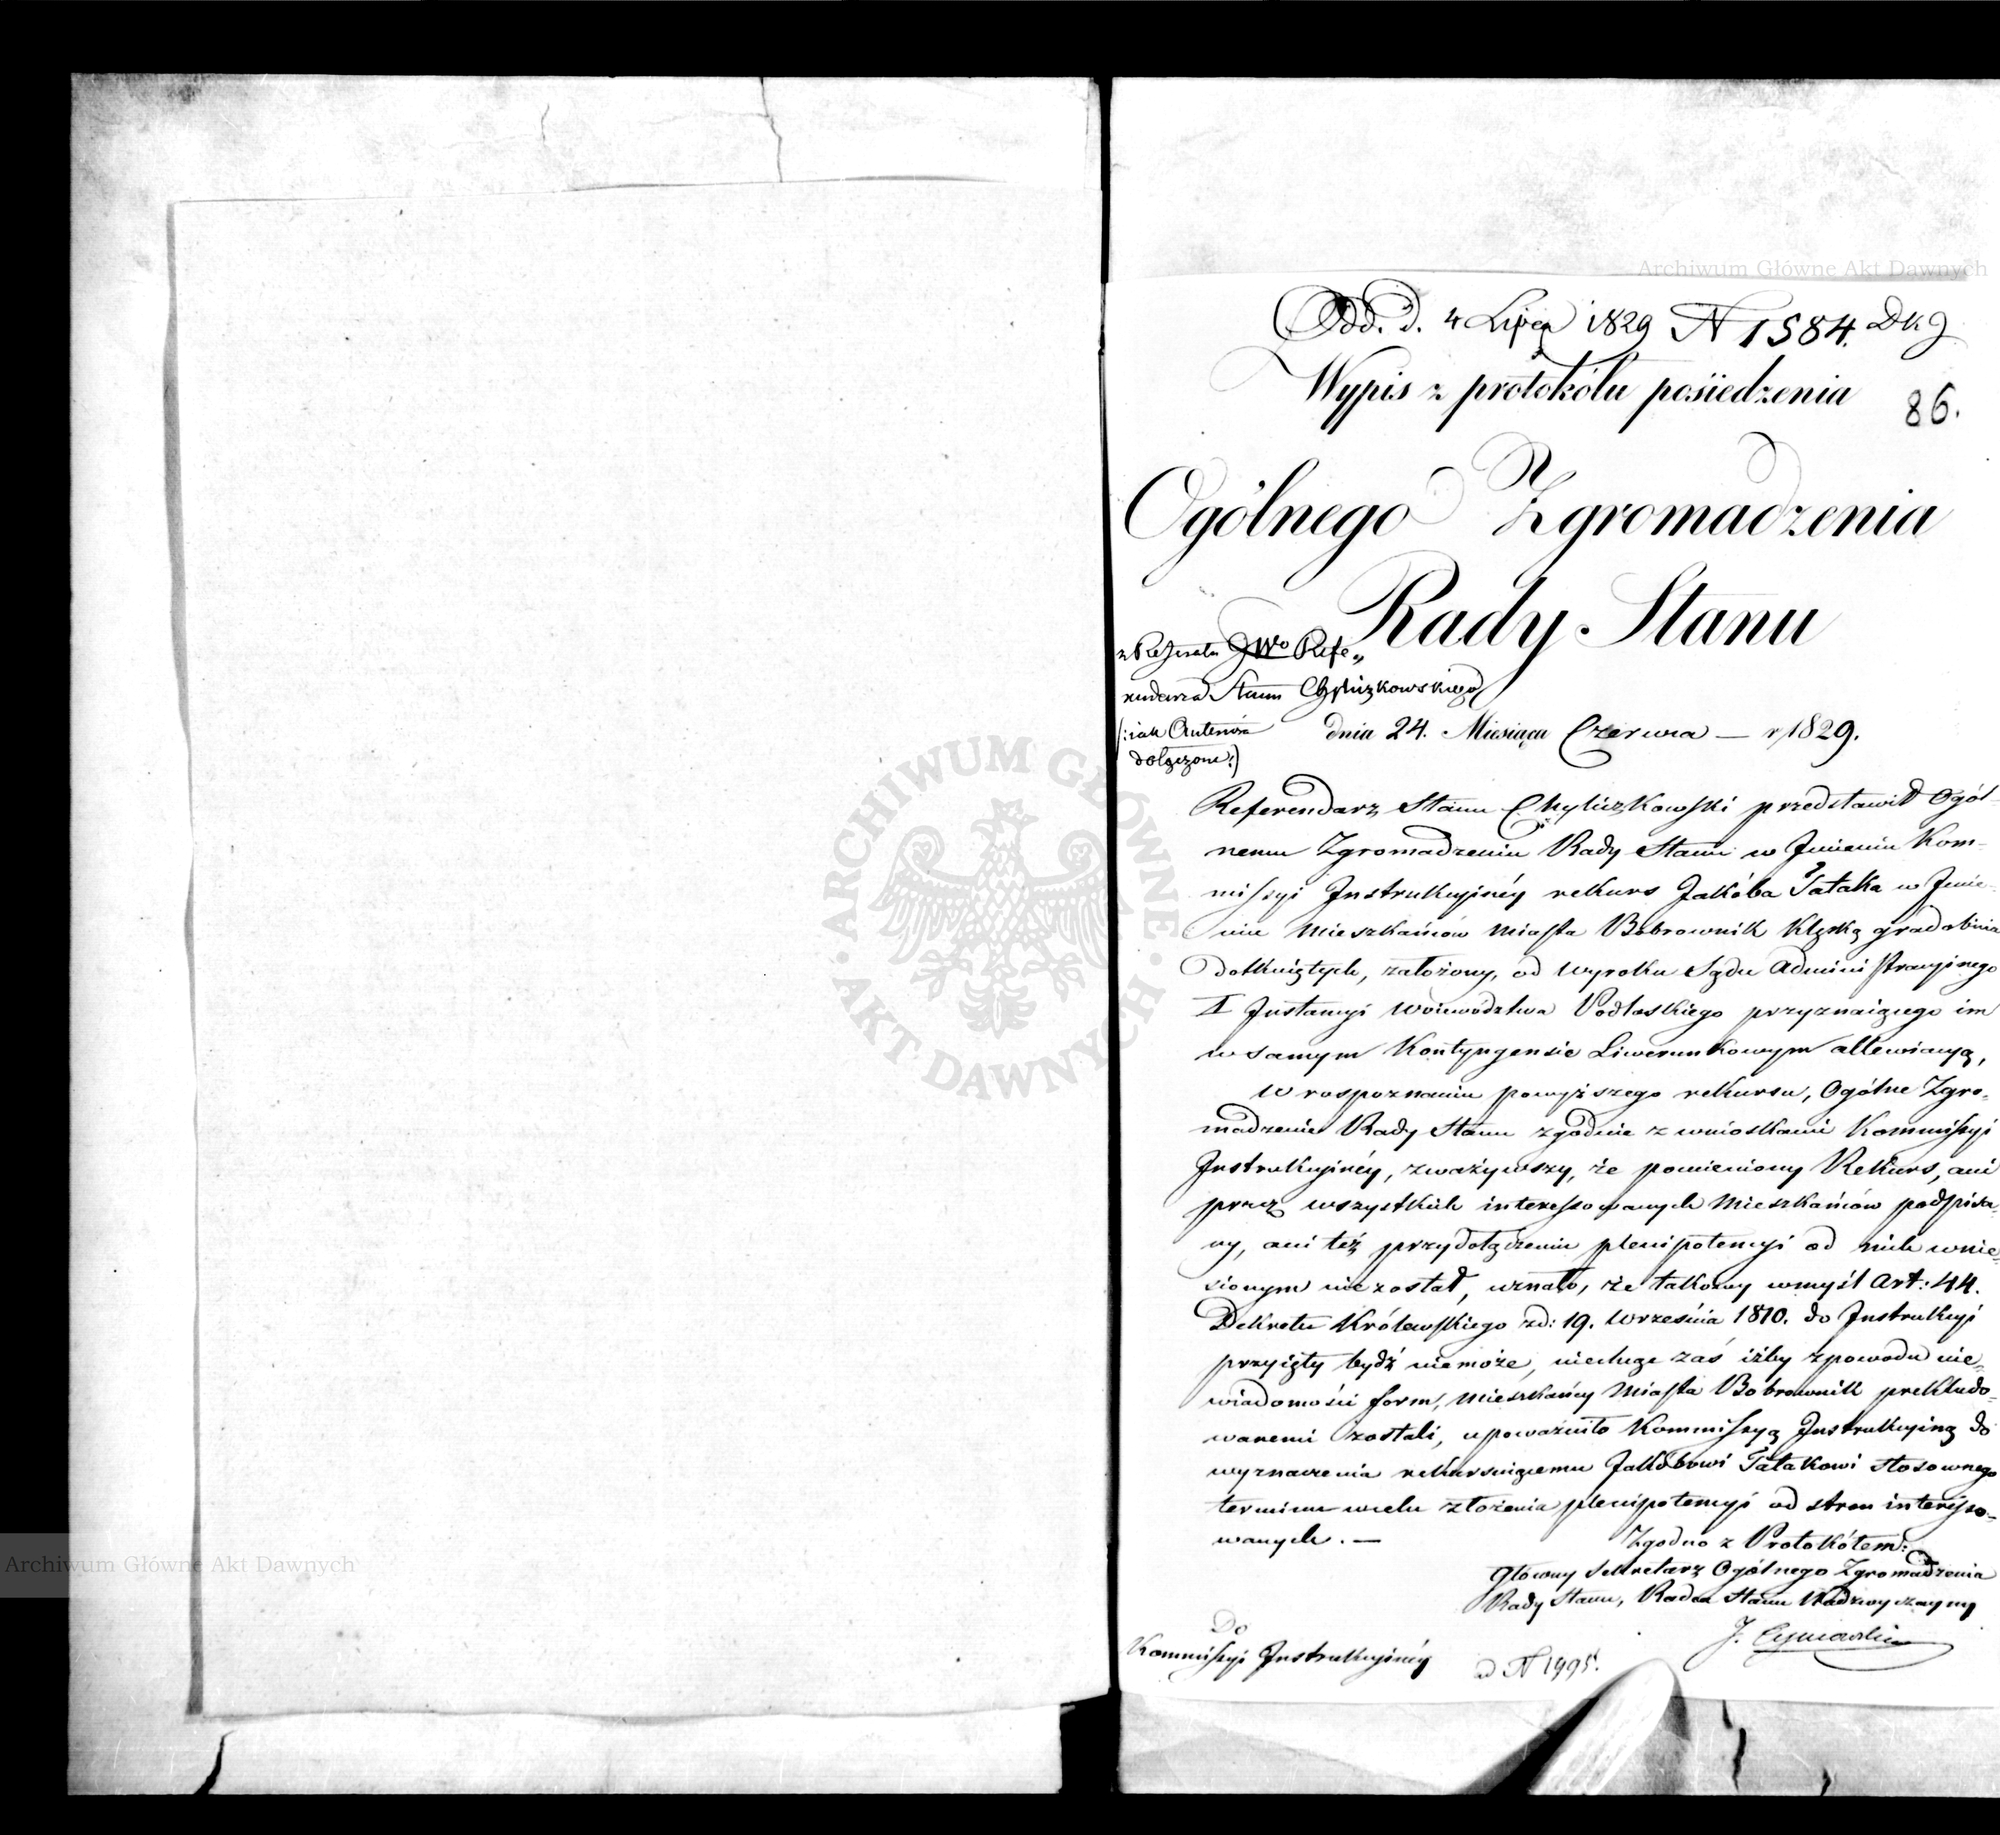 Archiwum Główne Akt Dawnych
Odd. d. 4 Lipca 1829 N 1584. DKJ
Wypis z protokółu posiedzenia
86.
Ogólnego Zgromadzenia
Rady Stanu
z Referatu JWo Refe„
rendarza Stanu Chyliczkowskiego
dołączone:)
dnia 24. Miesiąca Czerwca — r 1829.
Referendarz Stanu Chyliczkowski przedstawił Ogól-
nemu Zgromadzeniu Rady Stanu w Jmieniu Kom-
missyi Instrukcyinéy rekurs Jakóba Pataka w Jmie-
niu Mieszkańców Miasta Bobrownik klęską gradobicia
dotkniętych, założony, od wyroku Sądu Administracyinego
I Instancyi Woiewództwa Podlaskiego przyznaiącego im
w samym Kontyngensie Liwerunkowym allewiacyą,
W rospoznaniu powyższego rekursu, Ogólne Zgro-
madzenie Rady Stanu zgodnie z wnioskami Kommissyi
Instrukcyinéy, zważywszy, że pomieniony Rekurs, ani
przez wszystkich interessowanych Mieszkańców podpisa-
ny, ani też przy dołączeniu plenipotencyi od nich wnie-
sionym nie został, uznało, że takowy w myśl Art: 44.
Dekretu Królewskiego z d: 19. Września 1810. do Instrukcyi
przyięty bydź nie może, niechcąc zaś iżby z powodu nie-
wiadomości form, Mieszkańcy Miasta Bobrownik prekludo-
wanemi zostali, upoważniło Kommissyą Instrukcyiną do
wyznaczenia rekursuiącemu Jakóbowi Patakowi stosownego
terminu w celu złożenia plenipotencyi od stron interesso-
wanych. —
Zgodno z Protokółem:
Główny Sekretarz Ogólnego Zgromadzenia
Rady Stanu, Radca Stanu Nadzwyczayny
Do
Kommissyi Instrukcyinéy
N 1995.
Archiwum Główne Akt Dawnych
ARCHIWUM GŁÓWNE · AKT DAWNYCH ·